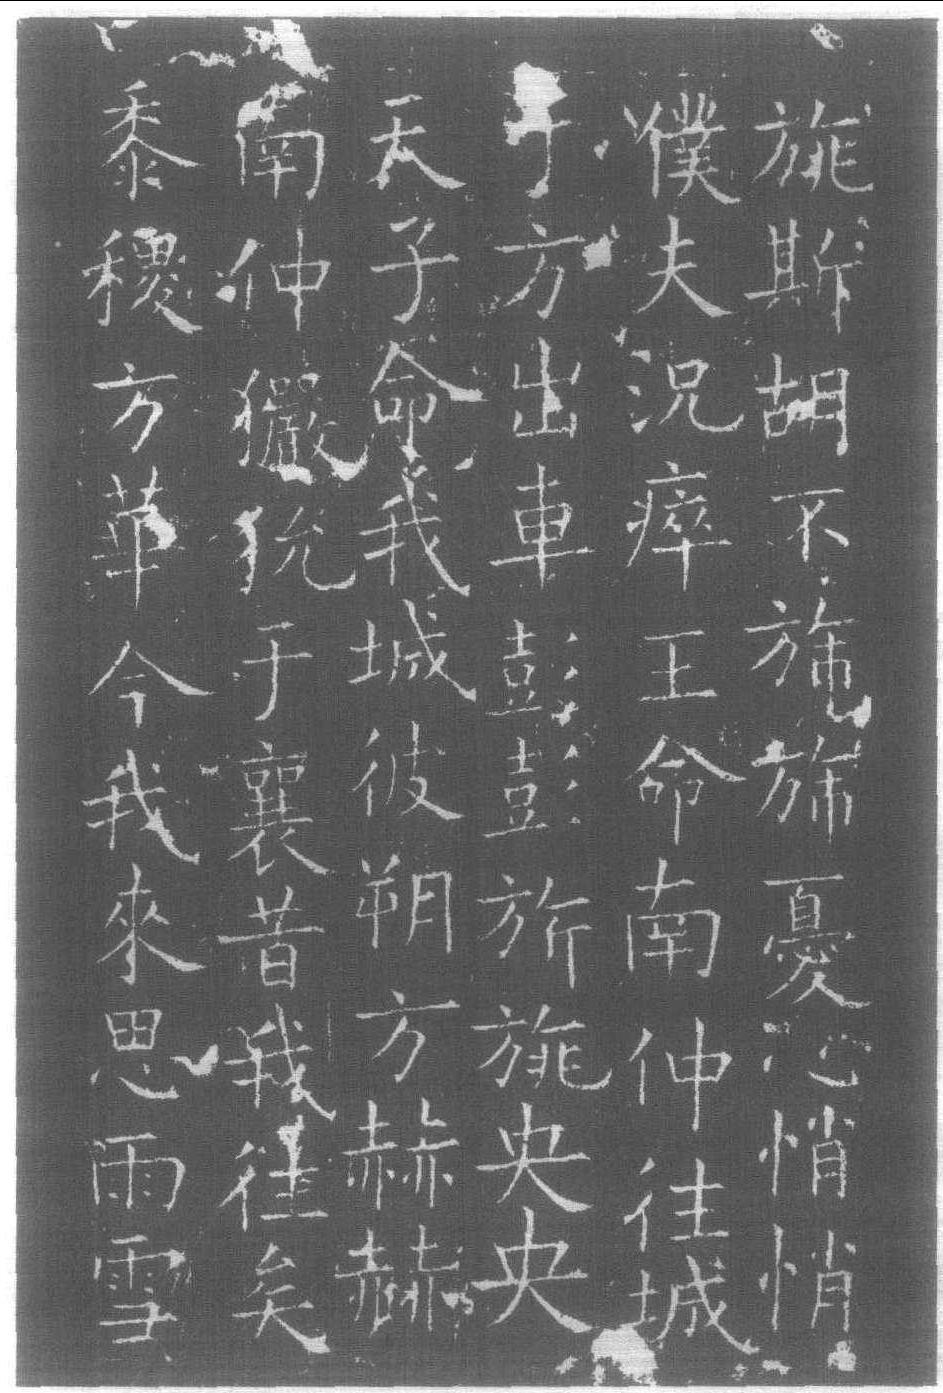 旐斯胡不旆旆憂心悄悄
僕夫況瘁王命南仲往城
于方出車彭彭旂旐央央
天子命我城彼朔方赫赫
南仲玁狁于襄昔我往矣
黍稷方華今我來思雨雪